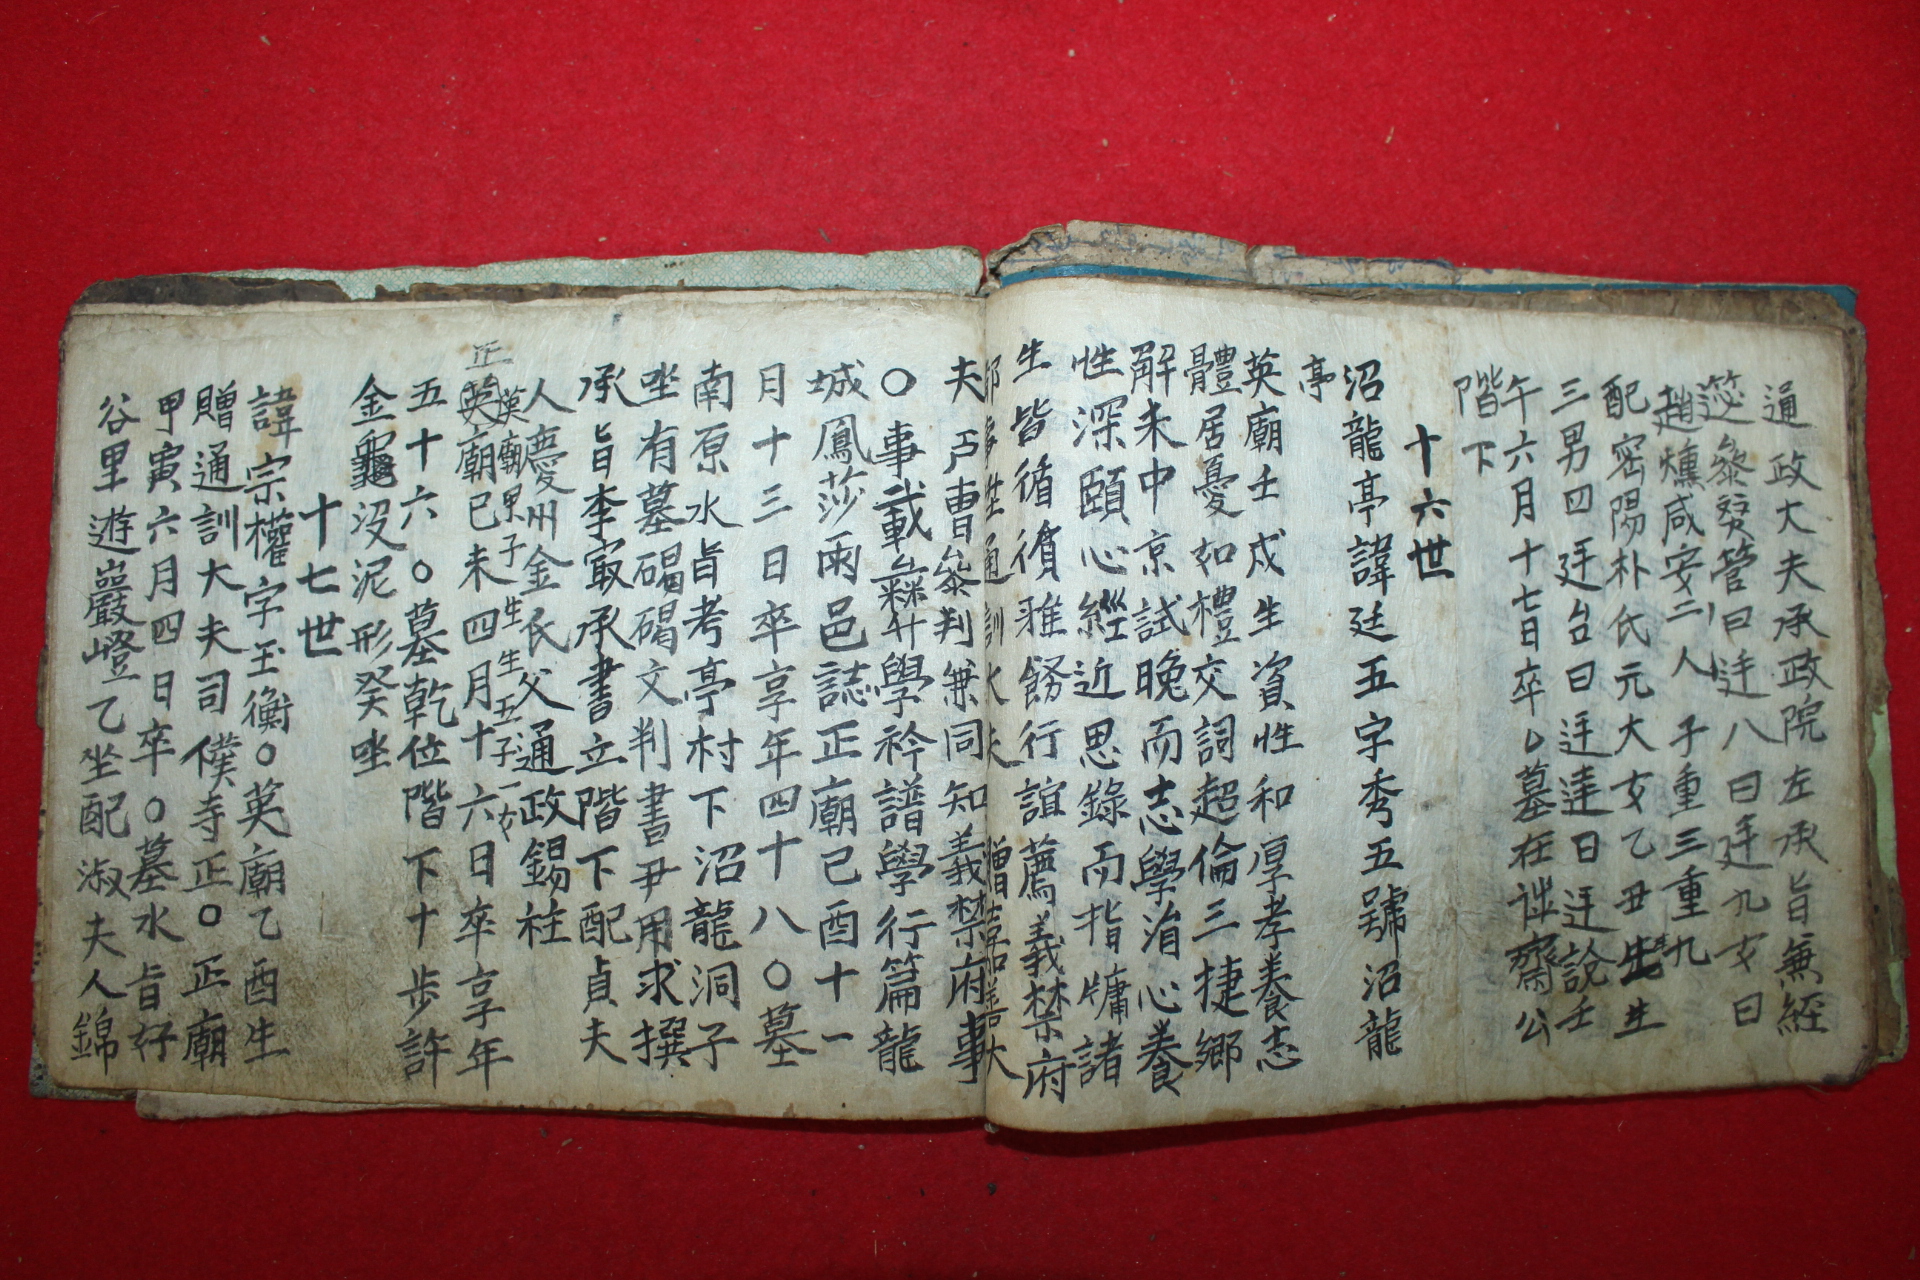 通政大夫承政院左承旨無經
筵參贊管曰廷八曰廷九女曰
趙爋咸安二人子重三重九
配密陽朴氏元大女乙丑生生
三男四廷台曰廷達曰廷說壬
午六月十七日卒墓在齋公
階下
十六世
沼龍亭諱廷五字秀五號沼龍
亭
英廟壬戌生資性和厚孝養志
體居憂如禮交詞超倫三捷鄉
解未中京試晚而志學治心養
性深頤心經近思錄而指牗諸
生皆循循雅飭行誼薦義禁府
都事生通訓大夫贈嘉善大
夫戶曹參判兼同知義禁府事
○事載學衿譜學行篇龍
城鳳莎兩邑誌正廟己酉十一
月十三日卒享年四十八○墓
南原水旨考亭村下沼龍洞子
坐有墓碣碣文判書尹用求撰
承旨李㝡承書立階下配貞夫
人慶州金氏父通政錫柱
漢廟甲子生生五子一女
正英廟己未四月十六日卒享年
五十六○墓乾位階下十步許
金龜沒泥形癸坐
十七世
諱宗權字玉衡○英廟乙酉生
贈通訓大夫司僕寺正○正廟
甲寅六月四日卒○墓水旨好
谷里遊巖嶝乙坐配淑夫人錦